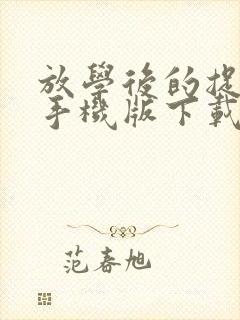 放學後的捉
手機版下載
范春旭